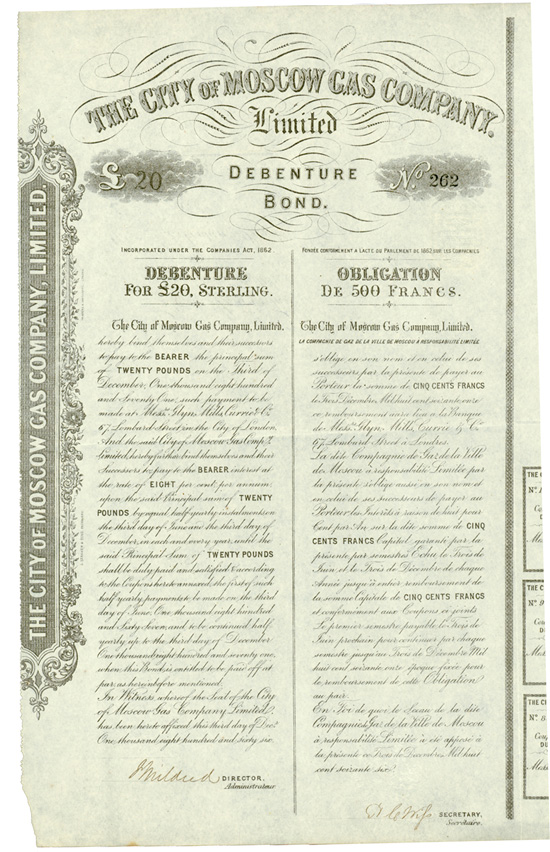 THE CITY OF MOSCOW GAS COMPANY, LIMITED.
THE CITY OF MOSCOW GAS COMPANY.
Limited
£ 20
DEBENTURE
BOND.
No. 262
INCORPORATED UNDER THE COMPANIES ACT, 1862
DEBENTURE
FOR £20, STERLING.
The City of Moscow Gas Company, Limited.
hereby bind themselves and their successors
to pay to the BEARER the principal sum
of TWENTY POUNDS on the Third of
December, One thousand eight hundred
and Seventy One, such payment to be
made at Messrs. Glyn, Mills, Currie & Co.
67, Lombard Street in the City of London.
And the said City of Moscow Gas Compy.
Limited, hereby further bind themselves and their
Successors to pay to the BEARER interest at
the rate of EIGHT per cent, per annum,
upon the said Principal sum of TWENTY
POUNDS by equal half yearly instalments on
the third day of June and the third day of
December, in each and every year, until the
said Principal Sum of TWENTY POUNDS
shall be duly paid and satisfied & according
to the Coupons hereto annexed, the first of such
half yearly payments to be made on the third
day of June, One thousand eight hundred
and Sixty Seven, and to be continued half
yearly up to the third day of December
One thousand eight hundred and seventy one,
when this Bond is entitled to be paid off at
par as herein before mentioned.
In Witness whereof the Seal of the City
of Moscow Gas Company, Limited,
has been hereto affixed this third day of Decr.
One thousand eight hundred and sixty six.
DIRECTOR,
Administrateur
FONDÉE CONFORMÉMENT A L'ACTE DU PARLEMENT DE 1862 SUR LES COMPAGNIES
OBLIGATION
DE 500 FRANCS.
The City of Moscow Gas Company, Limited.
LA COMPAGNIE DE GAZ DE LA VILLE DE MOSCOU A RESPONSABILITÉ LIMITÉE
s'oblige en son nom et en celui de ses
successeurs par la présente de payer au
Porteur la somme de CINQ CENTS FRANCS
le Trois Décembre, Mil huit cent soixante onze
ce remboursement aura lieu à la Banque
de Messrs. Glyn, Mills, Currie & Co.
67, Lombard Street à Londres.
La dite Compagnie de Gaz de la Ville
de Moscou à responsabilité Limitée par
la présente s'oblige aussi en son nom et
en celui de ses successeurs de payer au
Porteur les Intérêts à raison de huit pour
Cent par An sur la dite somme de CINQ
CENTS FRANCS Capital, garanti par la
présente par semestres Échu le Trois de
Juin et le Trois de Décembre de chaque
Année jusqu'à entier remboursement de
la somme Capitale de CINQ CENTS FRANCS
et conformément aux Coupons ci-joints
Le premier semestre payable le Trois de
Juin prochain pour continuer par chaque
semestre jusqu'au Trois de Décembre Mil
huit cent soixante onze époque fixée pour
le remboursement de cette Obligation
au pair.
En Foi de quoi le Sceau de la dite
Compagnie de Gaz de la Ville de Moscou
à responsabilité Limitée a été apposé à
la présente ce Trois de Décembre Mil huit
cent soixante six.
SECRETARY,
Secrétaire.